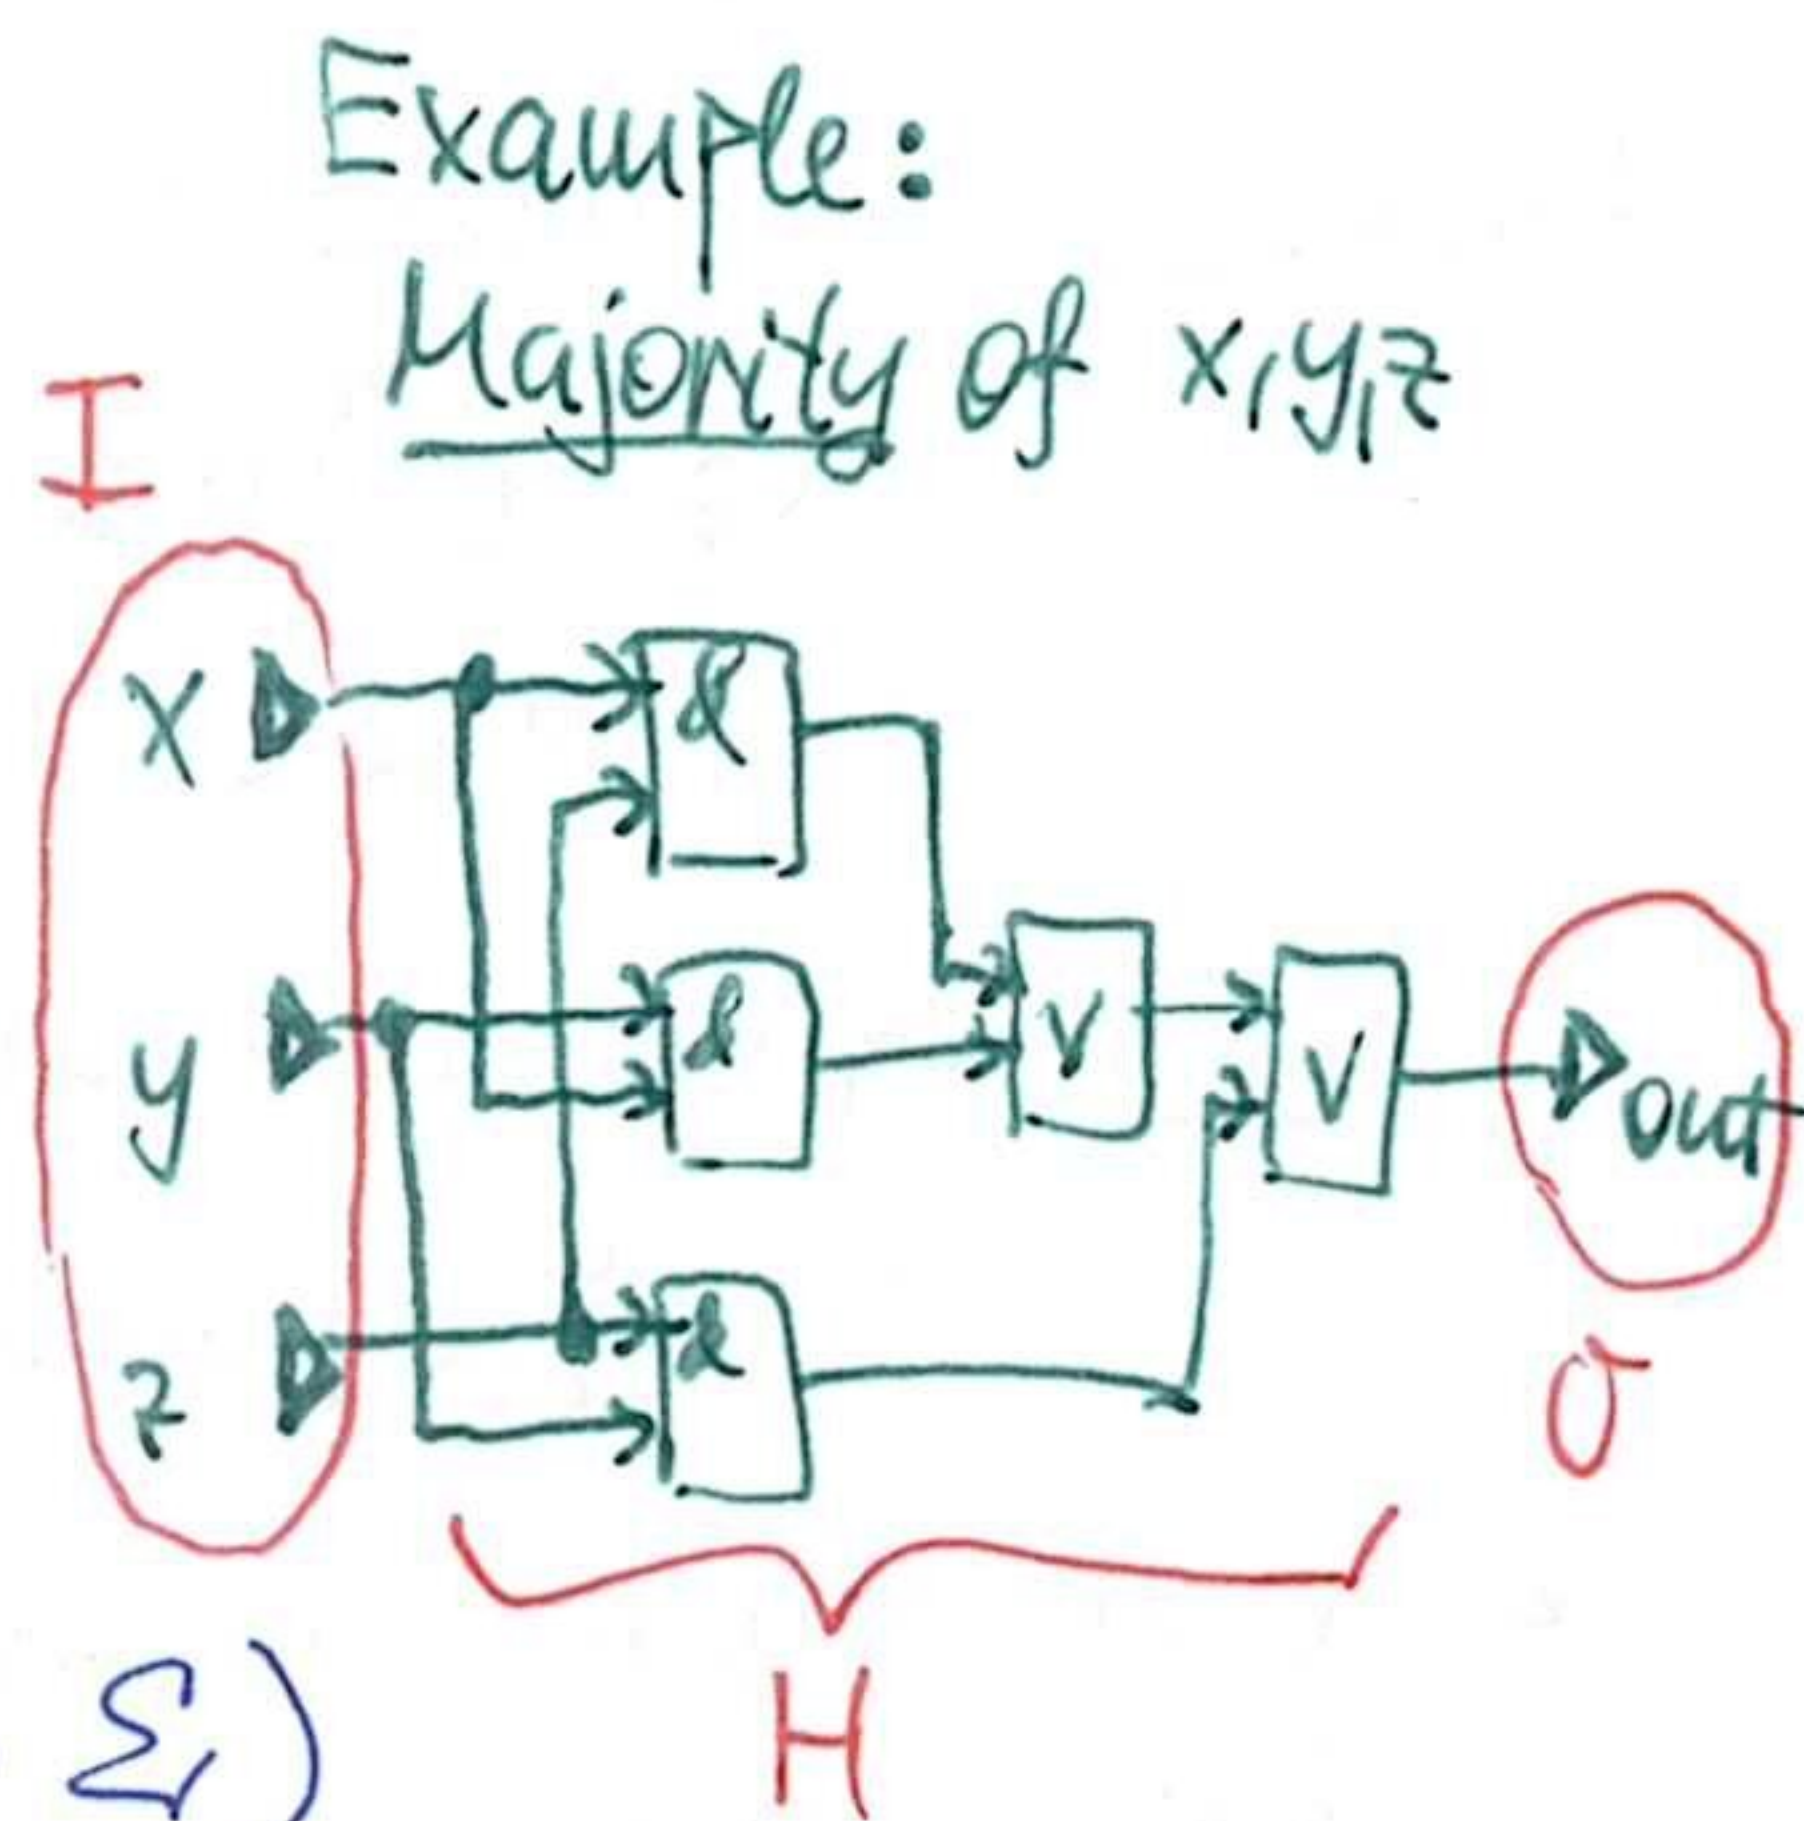 Example:
Majority of x,y,z
I
x
&
y
&
V
V
out
z
&
O
H
Σ,)